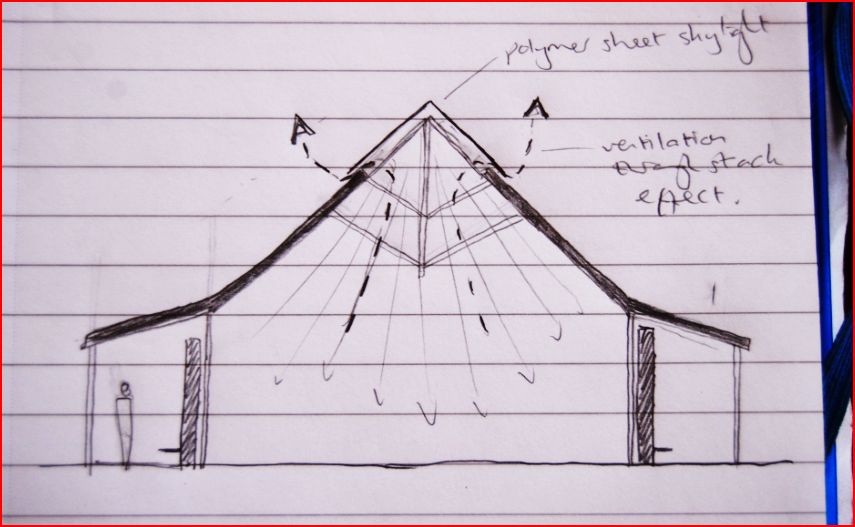 polymer sheet skylight
ventilation
through stack
effect.